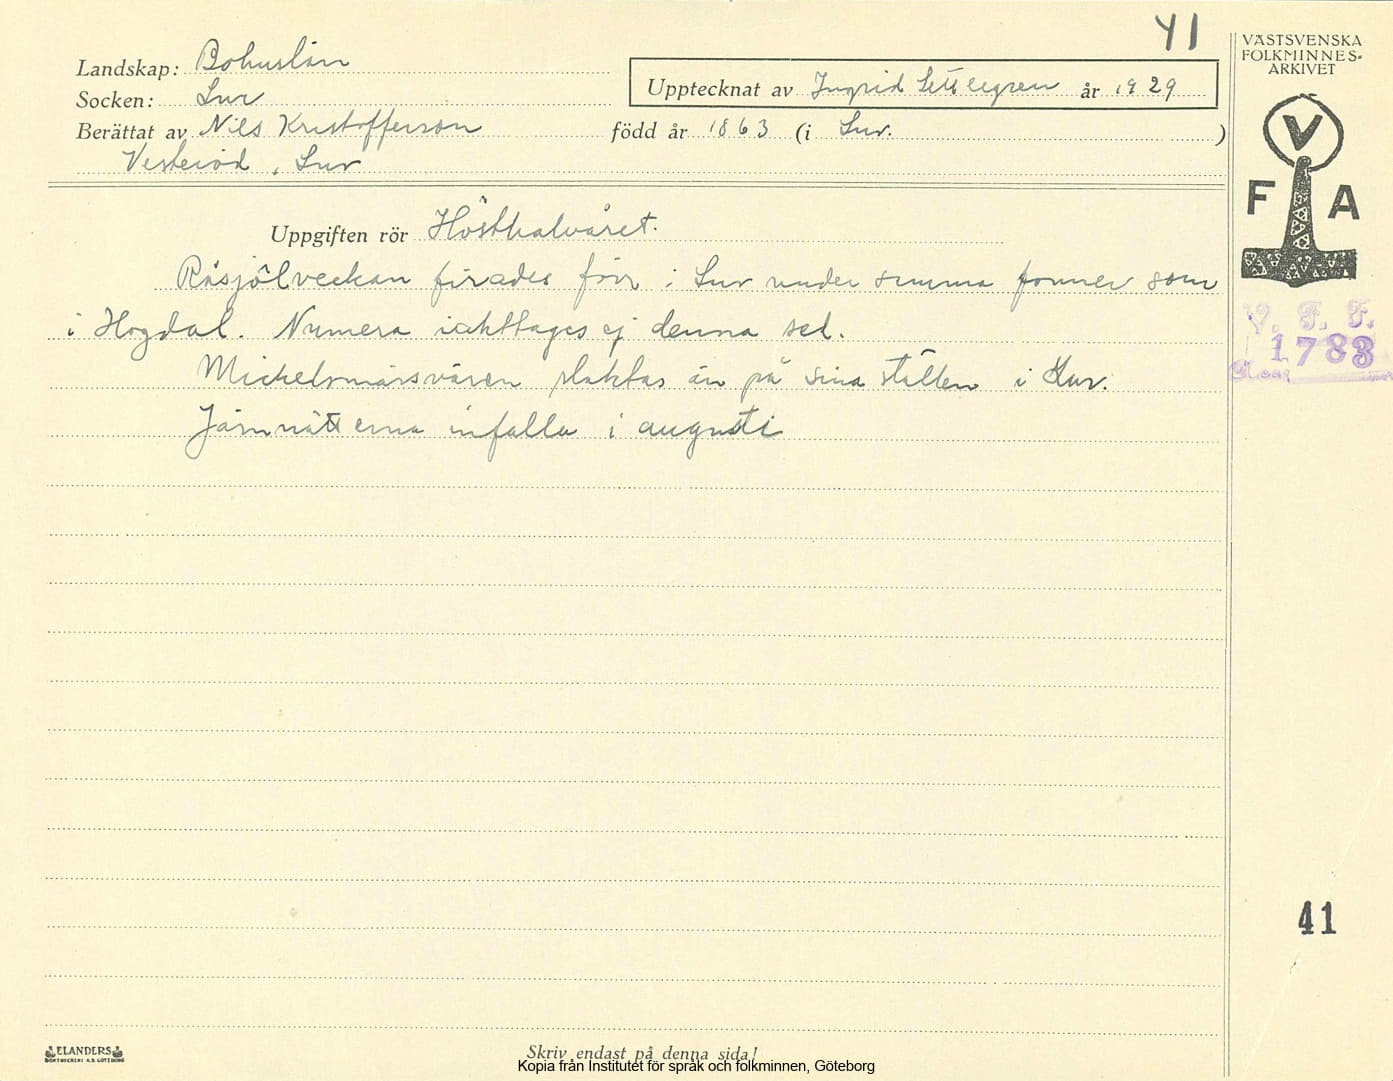 41
Landskap: Bohuslän
Socken: Lur
Upptecknat av Ingrid år 1929
Berättat av Nils Kristofferson född år 1863 (i Lur. )
Vesteröd, Lur
Uppgiften rör Hösthalvåret.
firades förr i Lur under samma former som
i Hogdal. Numera iakttages ej denna sed.
slaktas än på sina ställen i Lur.
Järnnätterna infalla i augusti
VÄSTSVENSKA
FOLKMINNES-
ARKIVET
V
F A
V. F. F.
1783
41
ELANDERS
BOKTRYCKERI A.B. GÖTEBORG
Skriv endast på denna sida!
Kopia från Institutet för språk och folkminnen, Göteborg